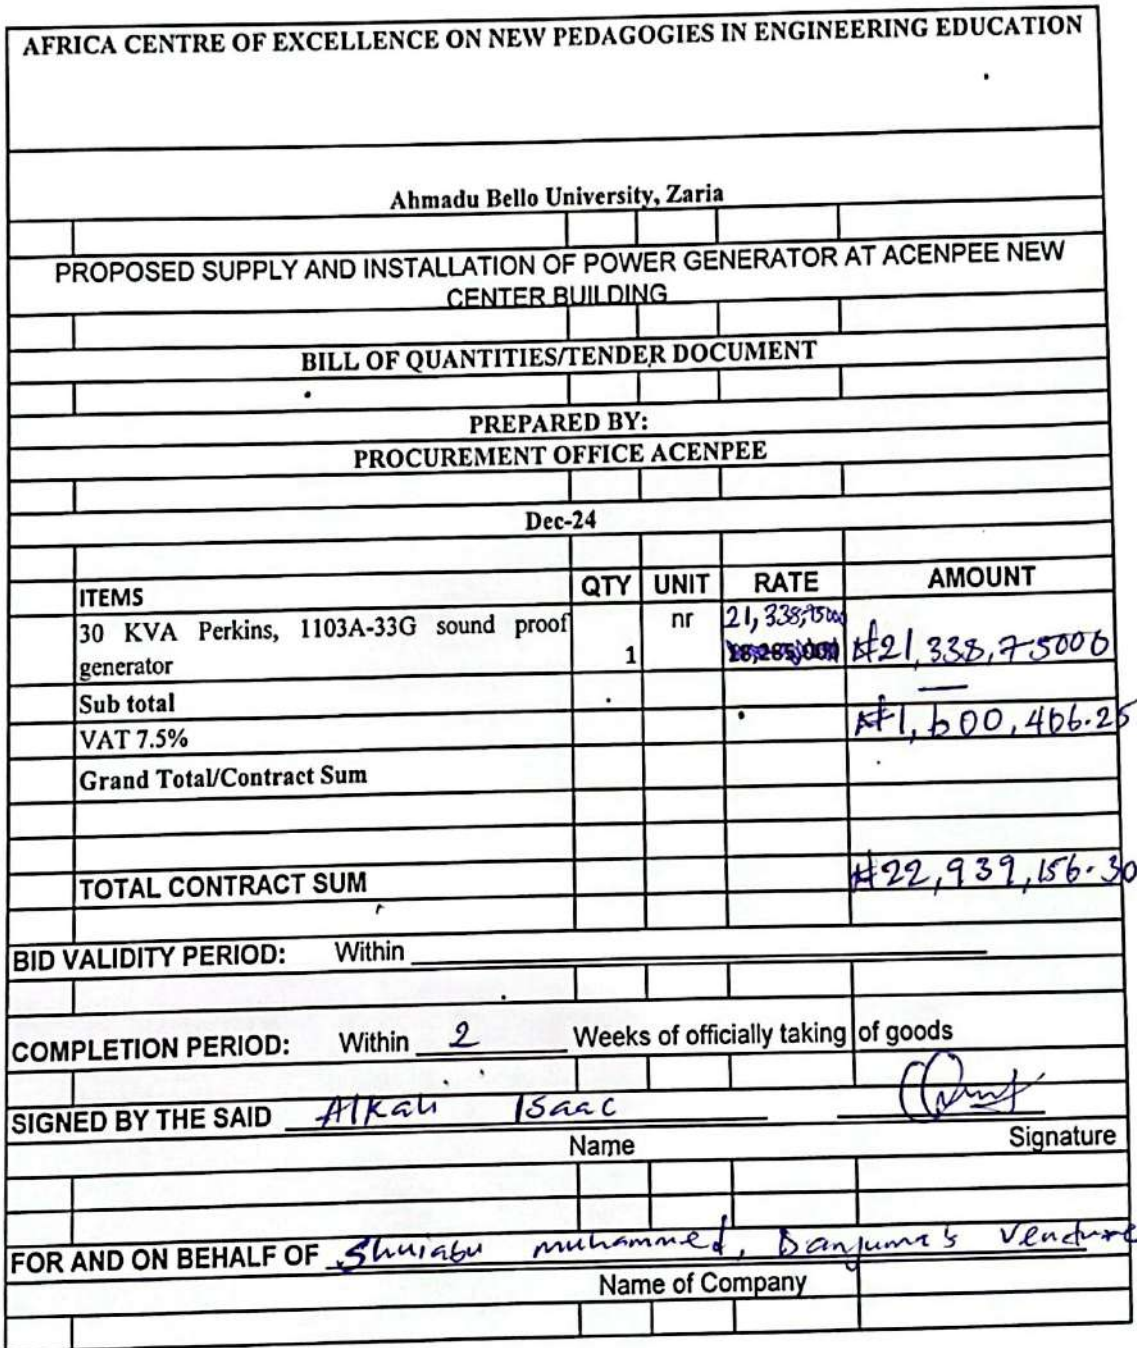 AFRICA CENTRE OF EXCELLENCE ON NEW PEDAGOGIES IN ENGINEERING EDUCATION
Ahmadu Bello University, Zaria
PROPOSED SUPPLY AND INSTALLATION OF POWER GENERATOR AT ACENPEE NEW
CENTER BUILDING
BILL OF QUANTITIES/TENDER DOCUMENT
PREPARED BY:
PROCUREMENT OFFICE ACENPEE
Dec-24
ITEMS QTY UNIT RATE AMOUNT
30 KVA Perkins, 1103A-33G sound proof nr 21,338,75000
generator 1 18,285,000 ₦21,338,75000
Sub total
VAT 7.5% ₦1,600,406.25
Grand Total/Contract Sum
TOTAL CONTRACT SUM ₦22,939,156.30
BID VALIDITY PERIOD: Within
COMPLETION PERIOD: Within 2 Weeks of officially taking of goods
SIGNED BY THE SAID Alkali Isaac
Name Signature
FOR AND ON BEHALF OF Shuiabu muhammed, Danjuma's Venture
Name of Company